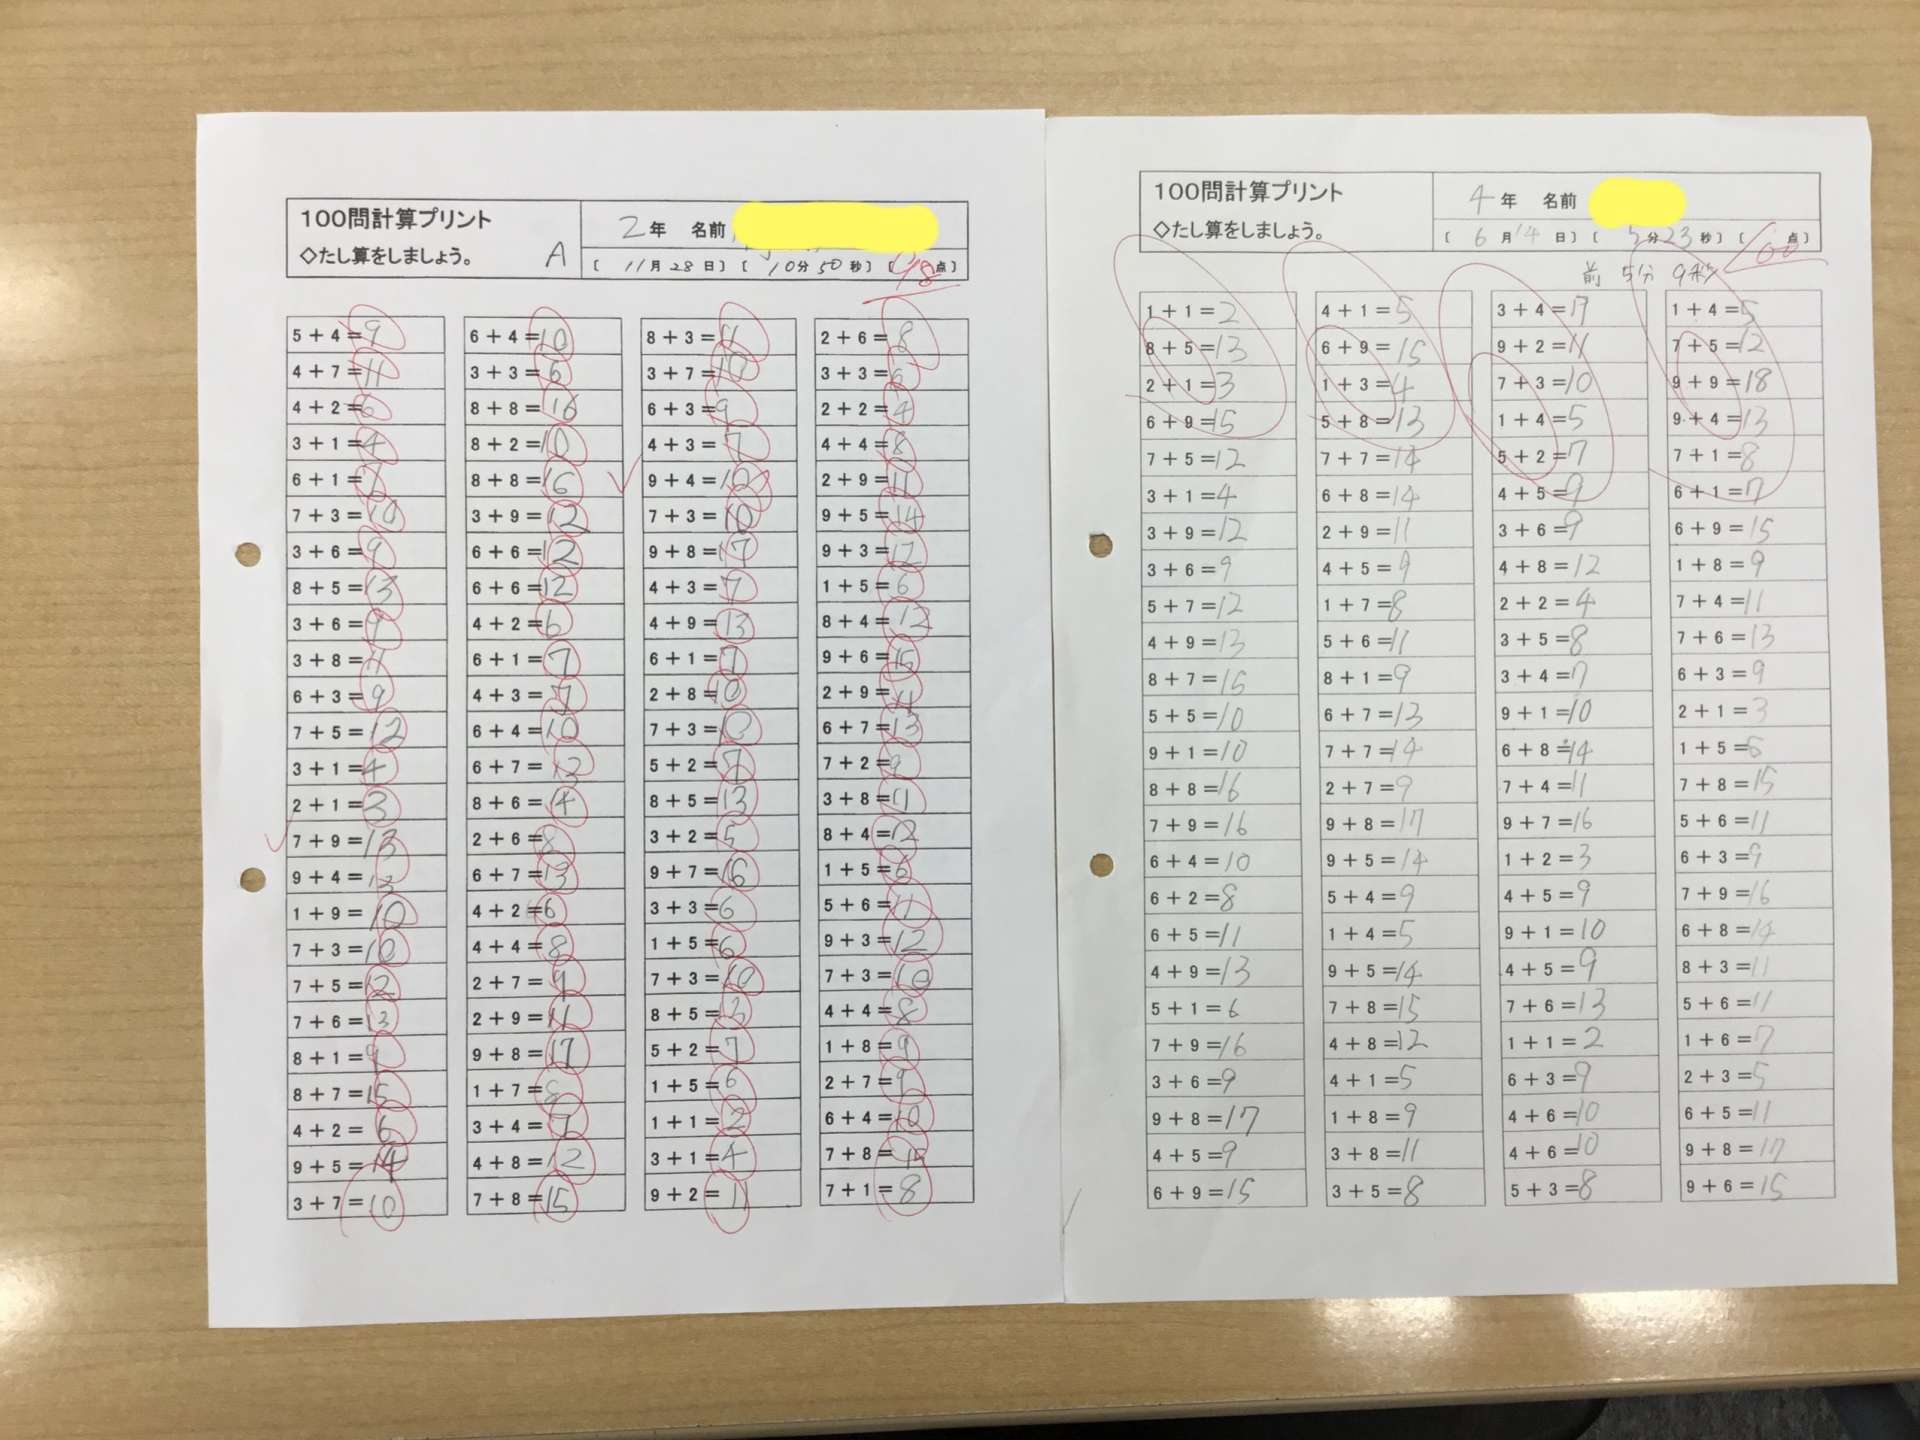 100問計算プリント
◇たし算をしましょう。 A
2年 名前
[ 11月28日 ] [ 10分50秒 ] [ 98点 ]
5+4=9
4+7=11
4+2=6
3+1=4
6+1=7
7+3=10
3+6=9
8+5=13
3+6=9
3+8=11
6+3=9
7+5=12
3+1=4
2+1=3
7+9=13
9+4=13
1+9=10
7+3=10
7+5=12
7+6=13
8+1=9
8+7=15
4+2=6
9+5=14
3+7=10
6+4=10
3+3=6
8+8=16
8+2=10
8+8=16
3+9=12
6+6=12
6+6=12
4+2=6
6+1=7
4+3=7
6+4=10
6+7=13
8+6=14
2+6=8
6+7=13
4+2=6
4+4=8
2+7=9
2+9=11
9+8=17
1+7=8
3+4=7
4+8=12
7+8=15
8+3=11
3+7=10
6+3=9
4+3=7
9+4=
7+3=10
9+8=17
4+3=7
4+9=13
6+1=7
2+8=10
7+3=10
5+2=7
8+5=13
3+2=5
9+7=16
3+3=6
1+5=6
7+3=10
8+5=13
5+2=7
1+5=6
1+1=2
3+1=4
9+2=11
2+6=8
3+3=6
2+2=4
4+4=8
2+9=11
9+5=14
9+3=12
1+5=6
8+4=12
9+6=15
2+9=11
6+7=13
7+2=9
3+8=11
8+4=12
1+5=6
5+6=11
9+3=12
7+3=10
4+4=8
1+8=9
2+7=9
6+4=10
7+8=15
7+1=8
100問計算プリント
◇たし算をしましょう。
4年 名前
[ 6月14日 ] [ 5分23秒 ] [ 100点 ]
前 5分 9秒
1+1=2
8+5=13
2+1=3
6+9=15
7+5=12
3+1=4
3+9=12
3+6=9
5+7=12
4+9=13
8+7=15
5+5=10
9+1=10
8+8=16
7+9=16
6+4=10
6+2=8
6+5=11
4+9=13
5+1=6
7+9=16
3+6=9
9+8=17
4+5=9
6+9=15
4+1=5
6+9=15
1+3=4
5+8=13
7+7=14
6+8=14
2+9=11
4+5=9
1+7=8
5+6=11
8+1=9
6+7=13
7+7=14
2+7=9
9+8=17
9+5=14
5+4=9
1+4=5
9+5=14
7+8=15
4+8=12
4+1=5
1+8=9
3+8=11
3+5=8
3+4=17
9+2=11
7+3=10
1+4=5
5+2=7
4+5=9
3+6=9
4+8=12
2+2=4
3+5=8
3+4=7
9+1=10
6+8=14
7+4=11
9+7=16
1+2=3
4+5=9
9+1=10
4+5=9
7+6=13
1+1=2
6+3=9
4+6=10
4+6=10
5+3=8
1+4=5
7+5=12
9+9=18
9+4=13
7+1=8
6+1=7
6+9=15
1+8=9
7+4=11
7+6=13
6+3=9
2+1=3
1+5=6
7+8=15
5+6=11
6+3=9
7+9=16
6+8=14
8+3=11
5+6=11
1+6=7
2+3=5
6+5=11
9+8=17
9+6=15